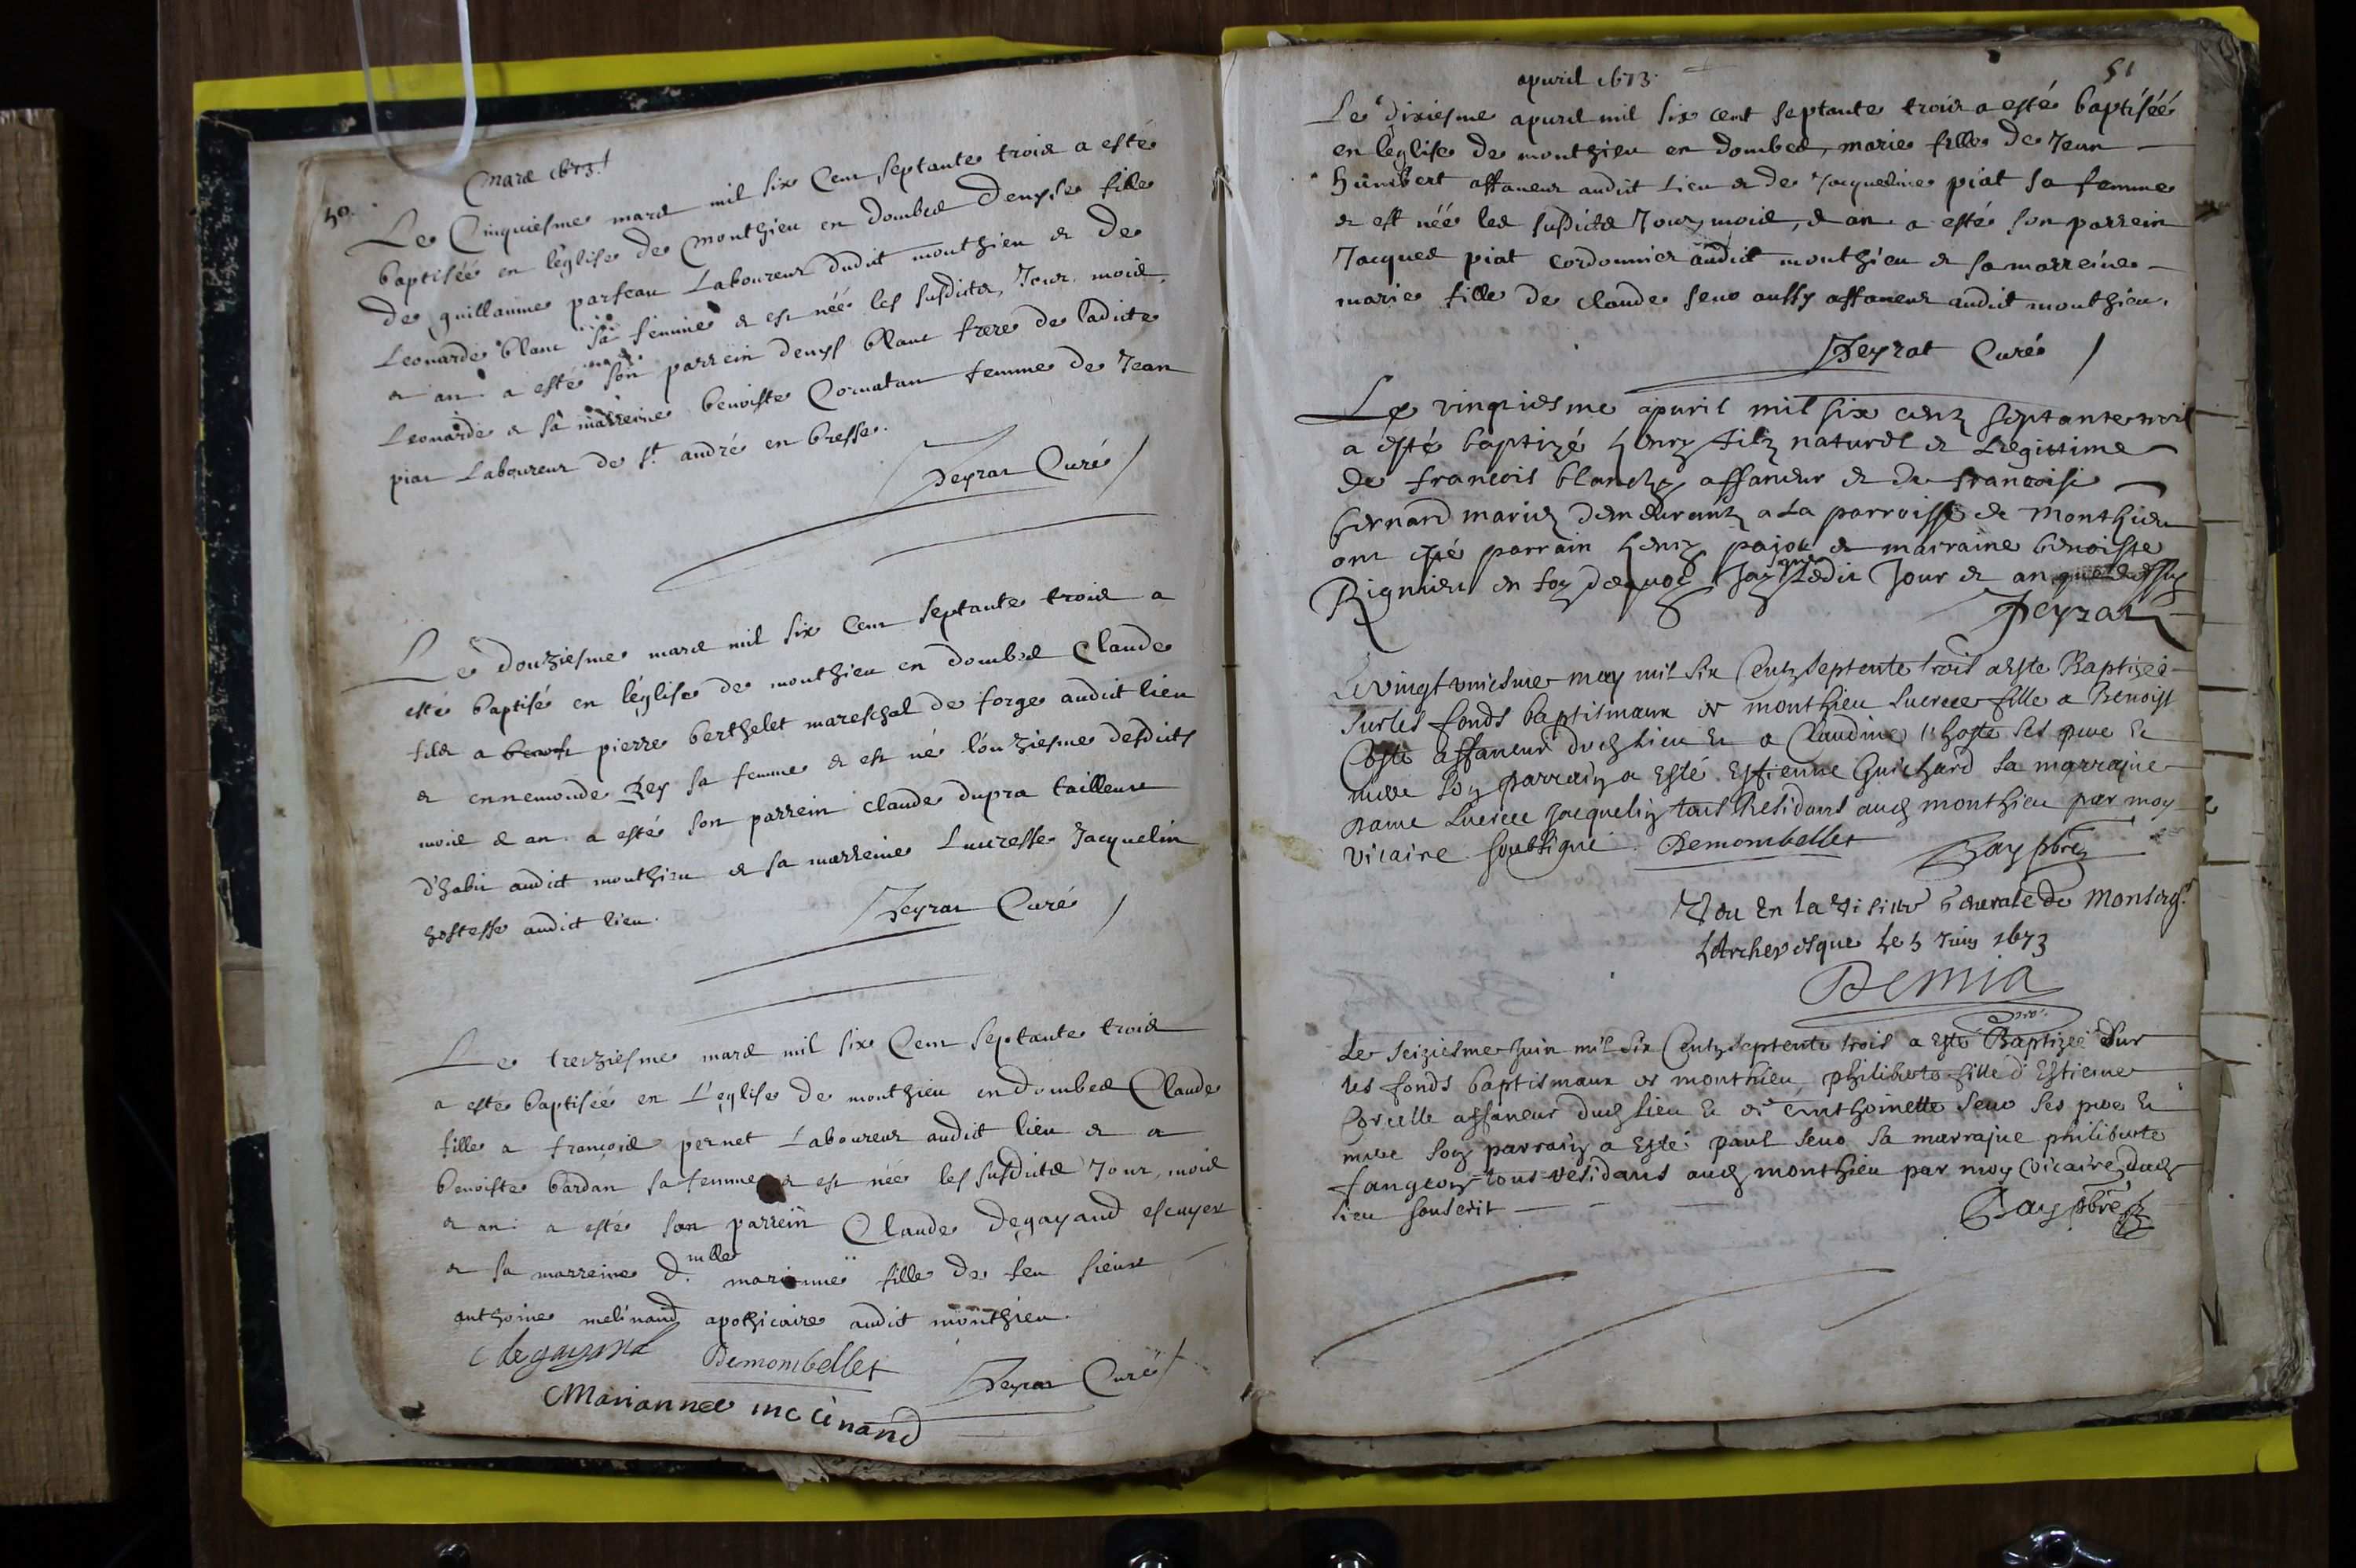 50.
Mars 1673.
Le Cinquiesme mars mil six Cent septante trois a esté
baptisée en l'église de Monthieu en dombes denyse fille
de guillaume parseau Laboureur dudict monthieu & de
Leonarde blanc sa femme & est née les susdicts Jour, mois,
& an. a esté son parrein denys blanc frere de ladicte
Leonarde & sa marreine benoiste Cornatan femme de Jean
piat Laboureur de St. andré en bresse.
Peyrat Curé
Le douziesme mars mil six Cent septante trois a
esté baptisé en l'église de monthieu en dombes Claude
fils a pierre berthelet mareschal de forge audict lieu
& ennemonde Rey sa femme & est né l'onziesme desdicts
mois & an. a esté son parrein claude dupra tailleur
d'habit audict monthieu & sa marreine Lucresse Jacquelin
hostesse audict lieu.
Peyrat Curé
Le treiziesme mars mil six Cent septante trois
a esté baptisée en L'église de monthieu en dombes Claude
fille a françois pernet Laboureur audict lieu & a
benoiste bardan sa femme & est née les susdicts Jour, mois
& an. a esté son parrein Claude degayand escuyer
& sa marreine d.mlle marianne fille de feu sieur
anthoine melinand apothicaire audict monthieu.
C degayand Demombellet Peyrat Curé
Marianne melinand
51
apuril 1673.
Le dixiesme apuril mil six cent septante trois a esté baptisée
en l'église de monthieu en dombes, marie fille de Jean
humbert affaneur audict Lieu & de Jacqueline piat sa femme
& est née les susdicts Jour, mois, & an. a esté son parrein
Jacques piat cordonnier audict monthieu & sa marreine
marie fille de claude seuo aussy affaneur audict monthieu.
Peyrat Curé
Le vingtiesme apuril mil six centz septante trois
a esté baptizé henry filz naturel & Legittime
de francois blanchy affaneur & de francoise
bernard mariez demeurantz a La parroisse de Monthieu
ont esté parrain henry pajot & marraine benoiste
Rignieu en foy dequoy Jay signé Ledit Jour & an
Peyrat
Le vingt vniesme may mil six Centz septente trois a Esté Baptizée
sur les fonds baptismaux de monthieu Lucrece fille a Benoist
Coste affaneur dud. lieu & a Claudine l'hoste ses pere &
mere son parrain a Esté Estienne Guichard sa marraine
dame Lucrece Jacquelin tous Residants aud. monthieu par moy
vicaire soubsigné Demombellet Bay pbre
Veu En la Visitte Generale de Monseigr.
L'Archevesque Le 5 Juin 1673
Demia
Le seiziesme Juin mil six Centz septente trois a Esté Baptizée sur
les fonds baptismaux de monthieu philiberte fille d'Estienne
affaneur dud. lieu & de Enthoinette seuo ses pere &
mere son parrain a Esté paul seuo sa marraine philiberte
fangeon tous residans aud. monthieu par moy Vicaire dud.
lieu souscrit
Bay pbre